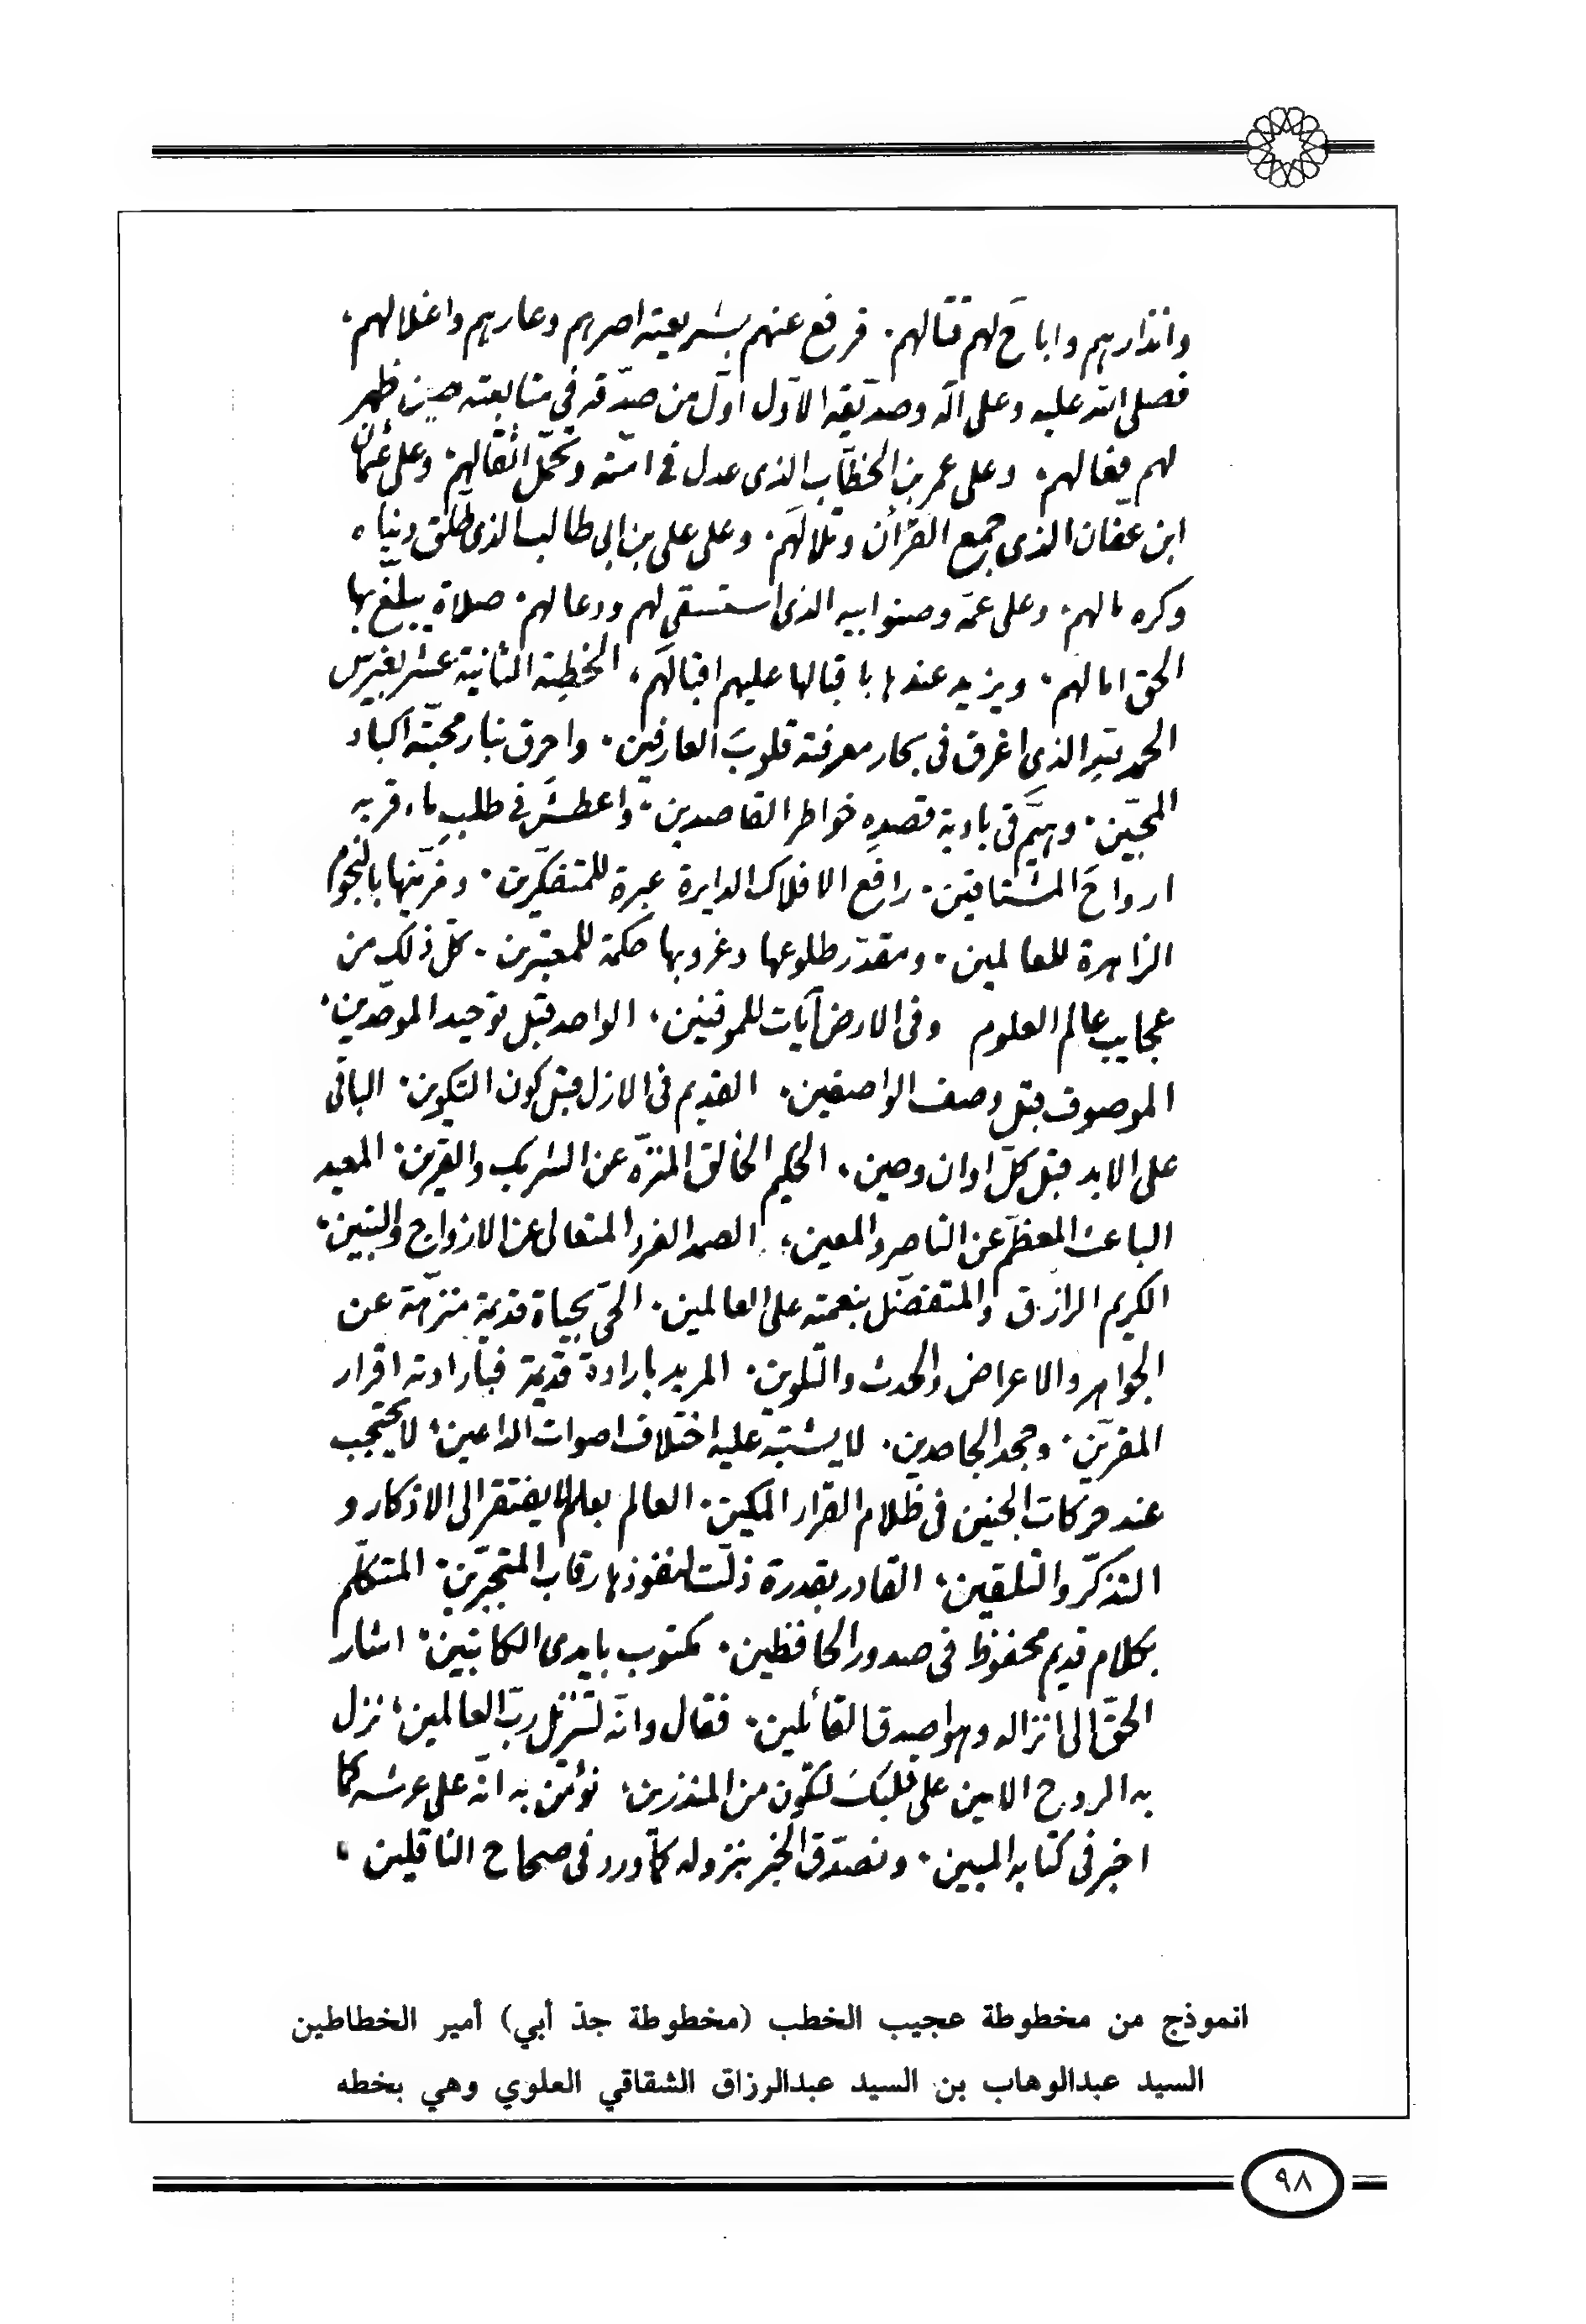 وانذارهم واباحَ لهم قتالهم. فرفع عنهم بشريعته اصرهم وعارهم واغلالهم.
فصلى الله عليه وعلى آله وصدّيقه الاوّل اوّل من صدّقه في متابعته حين ظهر
لهم فعالهم. وعلى عمر بن الخطّاب الذى عدل في امّته وتحمّل اثقالهم. وعلى عثمان
ابن عفّان الذى جمع القرأن وتلالهم. وعلى على بن ابى طالب الذى طلّق دنياه
وكره مالهم. وعلى عمّه وصنو ابيه الذى استسقى لهم ودعا لهم. صلاة يبلّغ بها
الحق امالهم. ويزيد عندها باقبالها عليهم اقبالهم. الخطبة الثانية عشر بغير س
الحمد لله الذى اغرق فى بحار معرفته قلوبَ العارفين. واحرق بنار محبّته اكباد
المحبّين. وهيّم فى بادية قصدِهِ خواطر القاصدين. واعطشَ في طلب ماء قربه
ارواحَ المشتاقين. رافع الافلاك الدايرة عبرة للمتفكّرين. ومزيّنها بالنجوم
الزاهرة للعالمين. ومقدّر طلوعها وغروبها حكمة للمعتبرين. كلّ ذلك من
عجايب عالم العلوم وفى الارض آيات للموقنين. الواحد قبل توحيد الموحّدين.
الموصوف قبل وصف الواصفين. القديم فى الازل قبل كون التكوين. الباقى
على الابد قبل كلّ اوان وحين. الحكيم الخالق المنزّه عن الشريك والقرين. المعيد
الباعث المعظّم عن الناصر والمعين. الصمد الفرد المتعالى عن الازواج والبنين.
الكريم الرازق والمتفضّل بنعمته على العالمين. الحىّ بحياة قديمة منزّهة عن
الجواهر والاعراض والحدث والتلوين. المريد بارادة قديمة فبارادته اقرار
المقرّين. وجحد الجاحدين. لا يشتبه عليه اختلاف اصوات الداعين. لا يحتجب
عند حركات الجنين فى ظلام القرار المكين. العالم بعلم لا يفتقر الى الاذكار و
التذكّر والتلقين. القادر بقدرة ذلّت لنفوذها رقاب المتجبّرين. المتكلّم
بكلام قديم محفوظ فى صدور الحافظين. مكتوب بايدى الكاتبين. اشار
الحقّ الى انزاله وهو اصدق القائلين. فقال وانّه لتنزيل ربّ العالمين. نزل
به الروح الامين على قلبك لتكون من المنذرين. نؤمن به انّه على عرشه كما
اخبر فى كتابه المبين. ونصدّق الخبر بنزوله كما ورد فى صحاح الناقلين.
انموذج من مخطوطة عجيب الخطب (مخطوطة جدّ أبي) أمير الخطاطين
السيد عبدالوهاب بن السيد عبدالرزاق الشقاقي العلوي وهي بخطه
٩٨